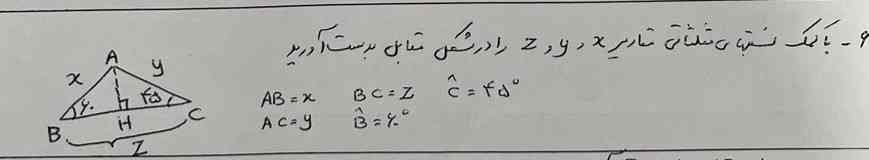 ۶ - با کمک نسبتهای مثلثاتی مقادیر x و y و z را در شکل مقابل بدست آورید
A
x
y
۶۰
۴۵
B
H
C
Z
AB = x   BC = Z   Ĉ = ۴۵°
AC = y   B̂ = ۶۰°